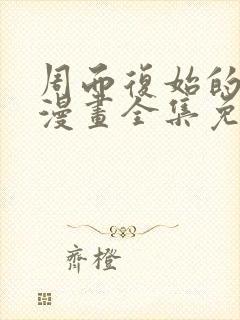 周而復始的
漫畫全集免
齊橙